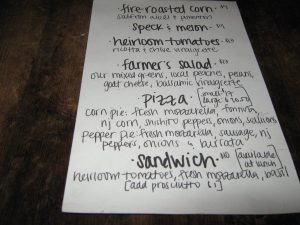 fire roasted corn
speck & melon
heirloom tomatoes
ricotta & chive vinaigrette
farmer's salad
our mixed greens, local peaches, pecans,
goat cheese, balsamic vinaigrette
pizza
corn pie: fresh mozzarella, fontina,
nj corn, shishito peppers, onions, scallions
pepper pie: fresh mozzarella, sausage, nj
peppers, onions & burrata
sandwich [available at lunch]
heirloom tomatoes, fresh mozzarella, basil
[add prosciutto